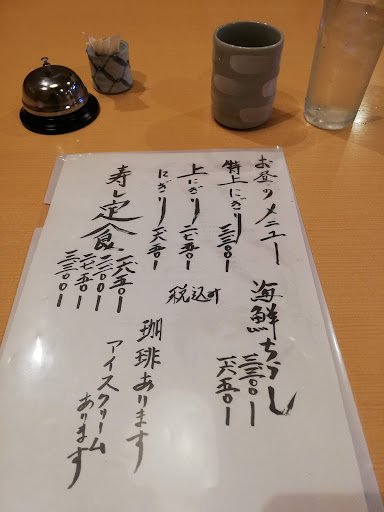 お昼のメニュー
特上にぎり
三三〇〇ー
上にぎり
二七五〇ー
にぎり
一六五〇ー
寿し定食
一六五〇ー
二二〇〇ー
二七五〇ー
三三〇〇ー
海鮮ちらし
三三〇〇ー
一六五〇ー
税込
珈琲あります
アイスクリーム
あります